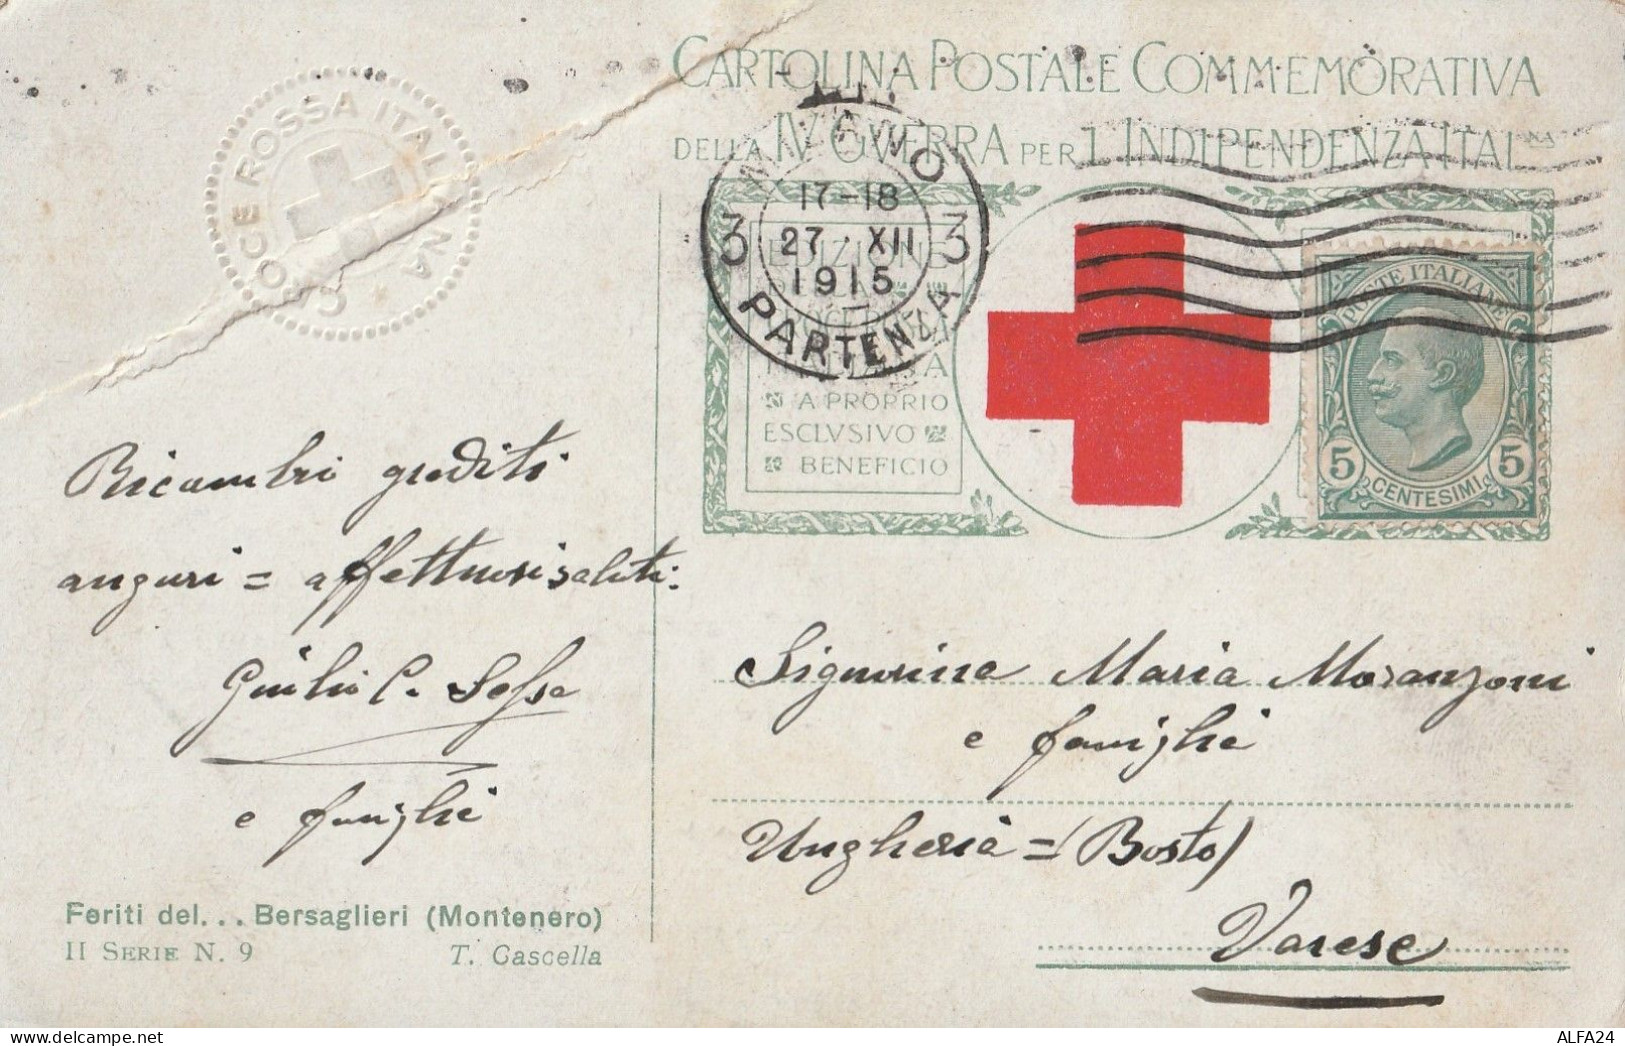 CROCE ROSSA ITALIANA
CARTOLINA POSTALE COMMEMORATIVA
DELLA IV GVERRA PER L'INDIPENDENZA ITALNA
MILANO
17-18
3 27·XII 3
1915
PARTENZA
EDIZIONE
DELLA
CROCE ROSSA
ITALIANA
A PROPRIO
ESCLVSIVO
BENEFICIO
POSTE ITALIANE
5 CENTESIMI 5
Ricambri graditi
auguri = affettuosi saluti.
Giulio C.
e famiglie
Signorina Maria Moranzoni
e famiglie
Ungheria = (Bosto)
Varese
Feriti del... Bersaglieri (Montenero)
II SERIE N. 9 T. Cascella
ALFA24